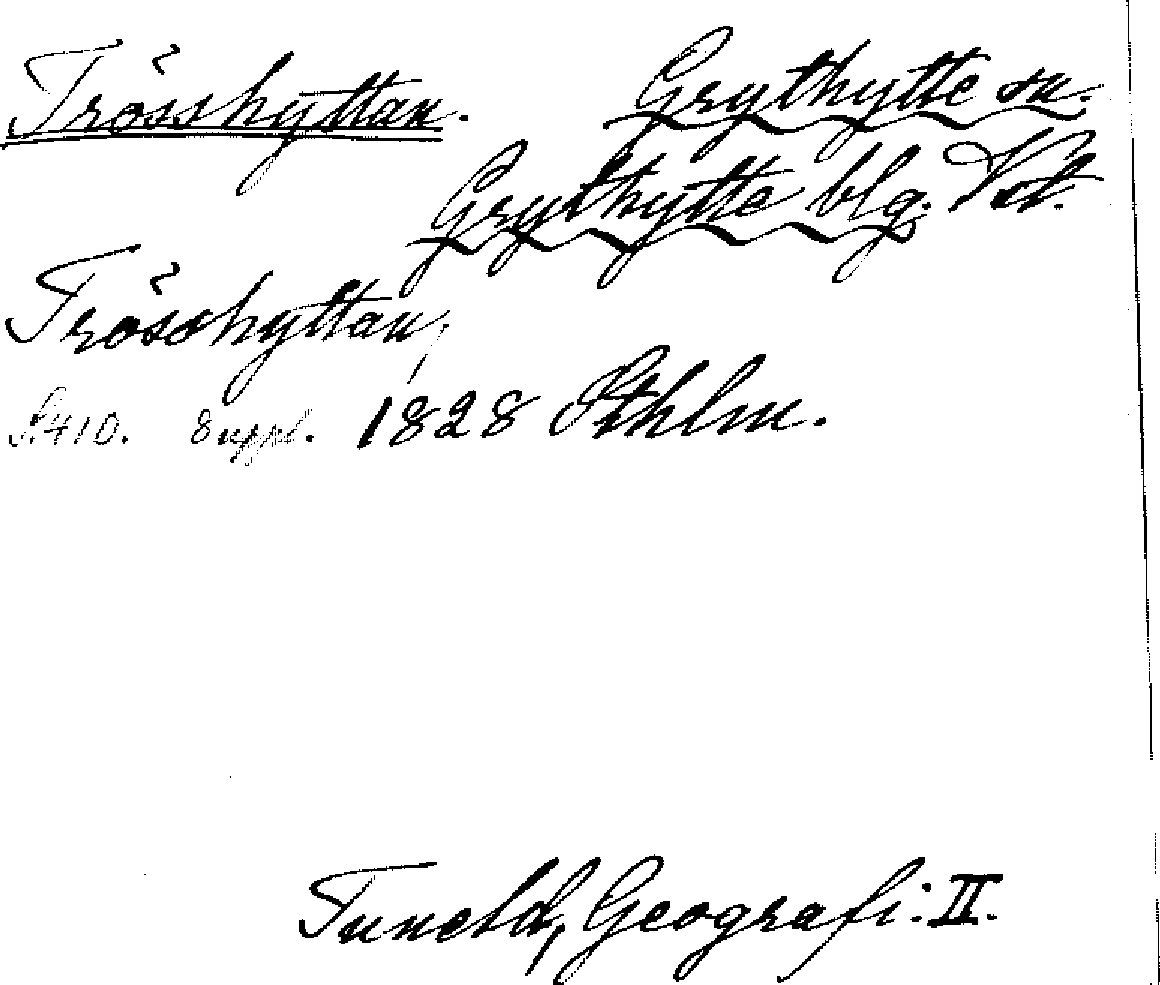 Trösshyttan. Grythytte sn.
Grythytte blg. Vstm.
Trösshyttan,
S. 410. 8 uppl. 1828 Sthlm.
Tuneld, Geografi. II.